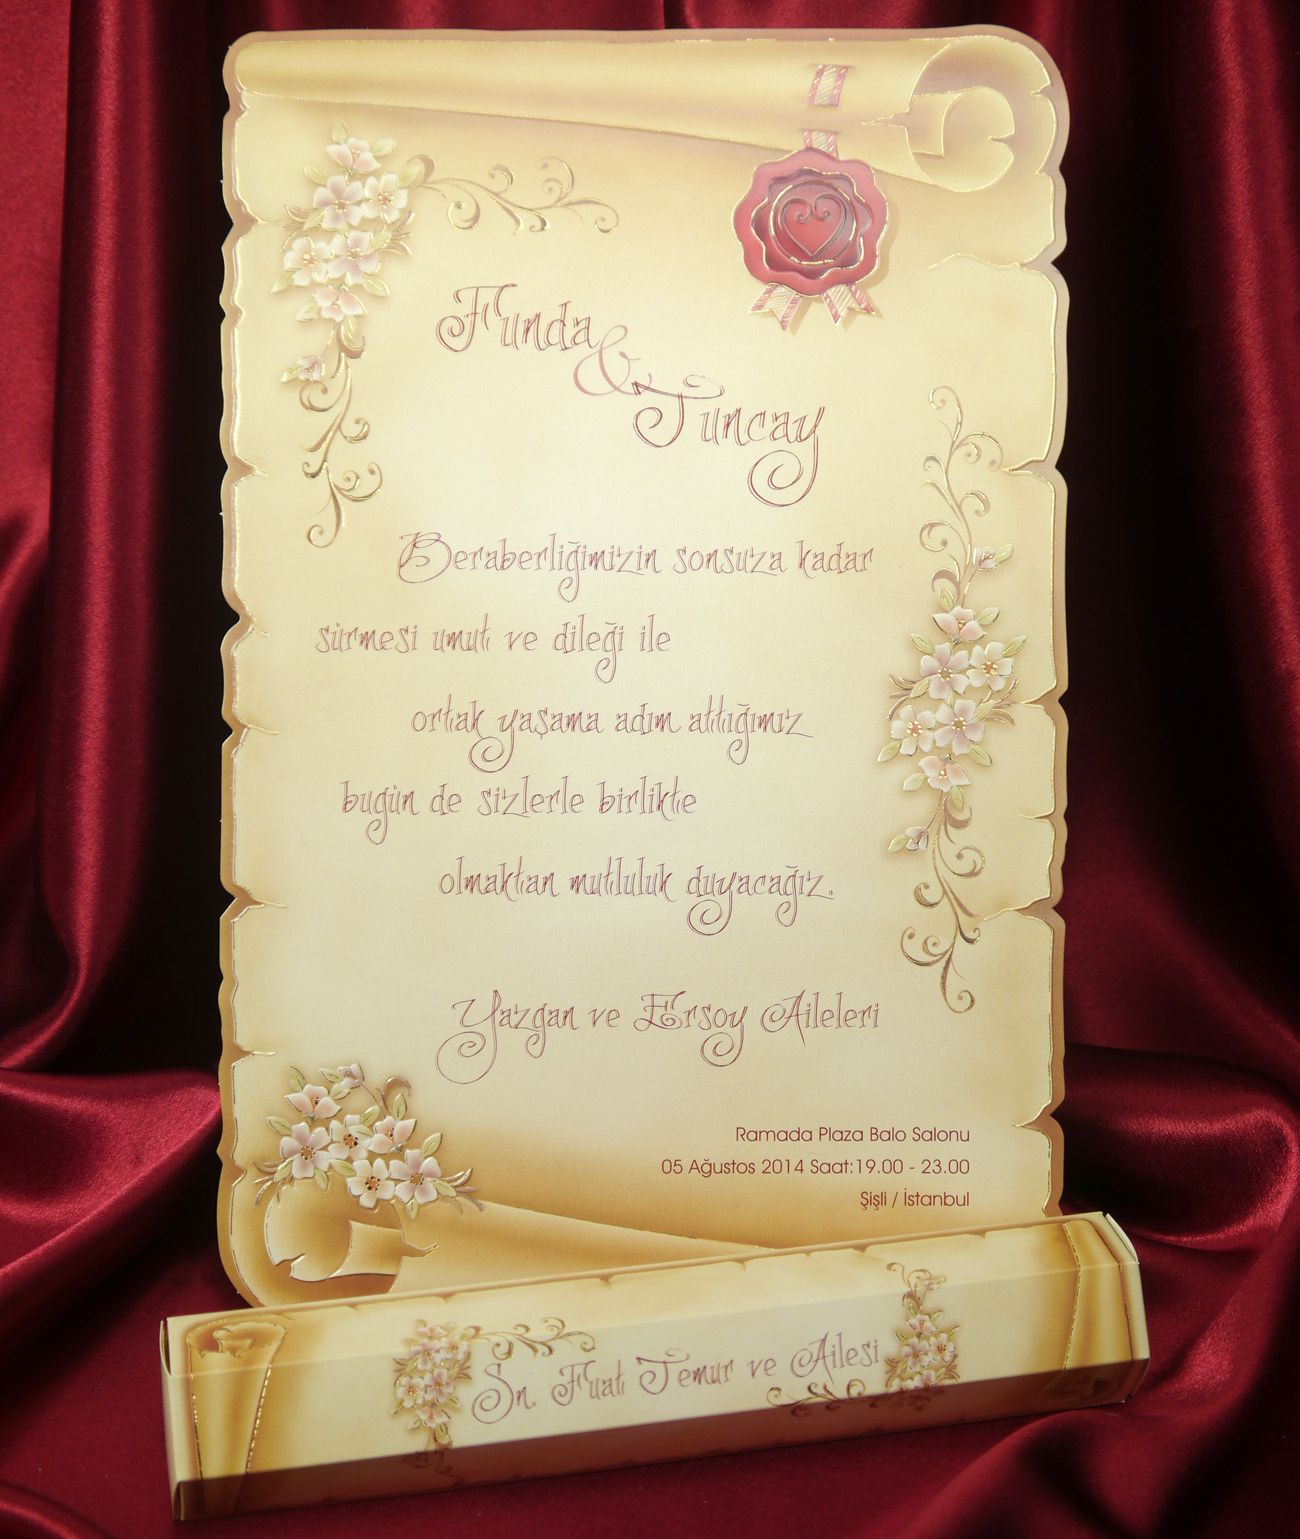 Funda
&
Tuncay
Beraberliğimizin sonsuza kadar
sürmesi umut ve dileği ile
ortak yaşama adım attığımız
bugün de sizlerle birlikte
olmaktan mutluluk duyacağız.
Yazgan ve Ersoy Aileleri
Ramada Plaza Balo Salonu
05 Ağustos 2014 Saat:19.00 - 23.00
Şişli / İstanbul
Sn. Fuat Temur ve Ailesi